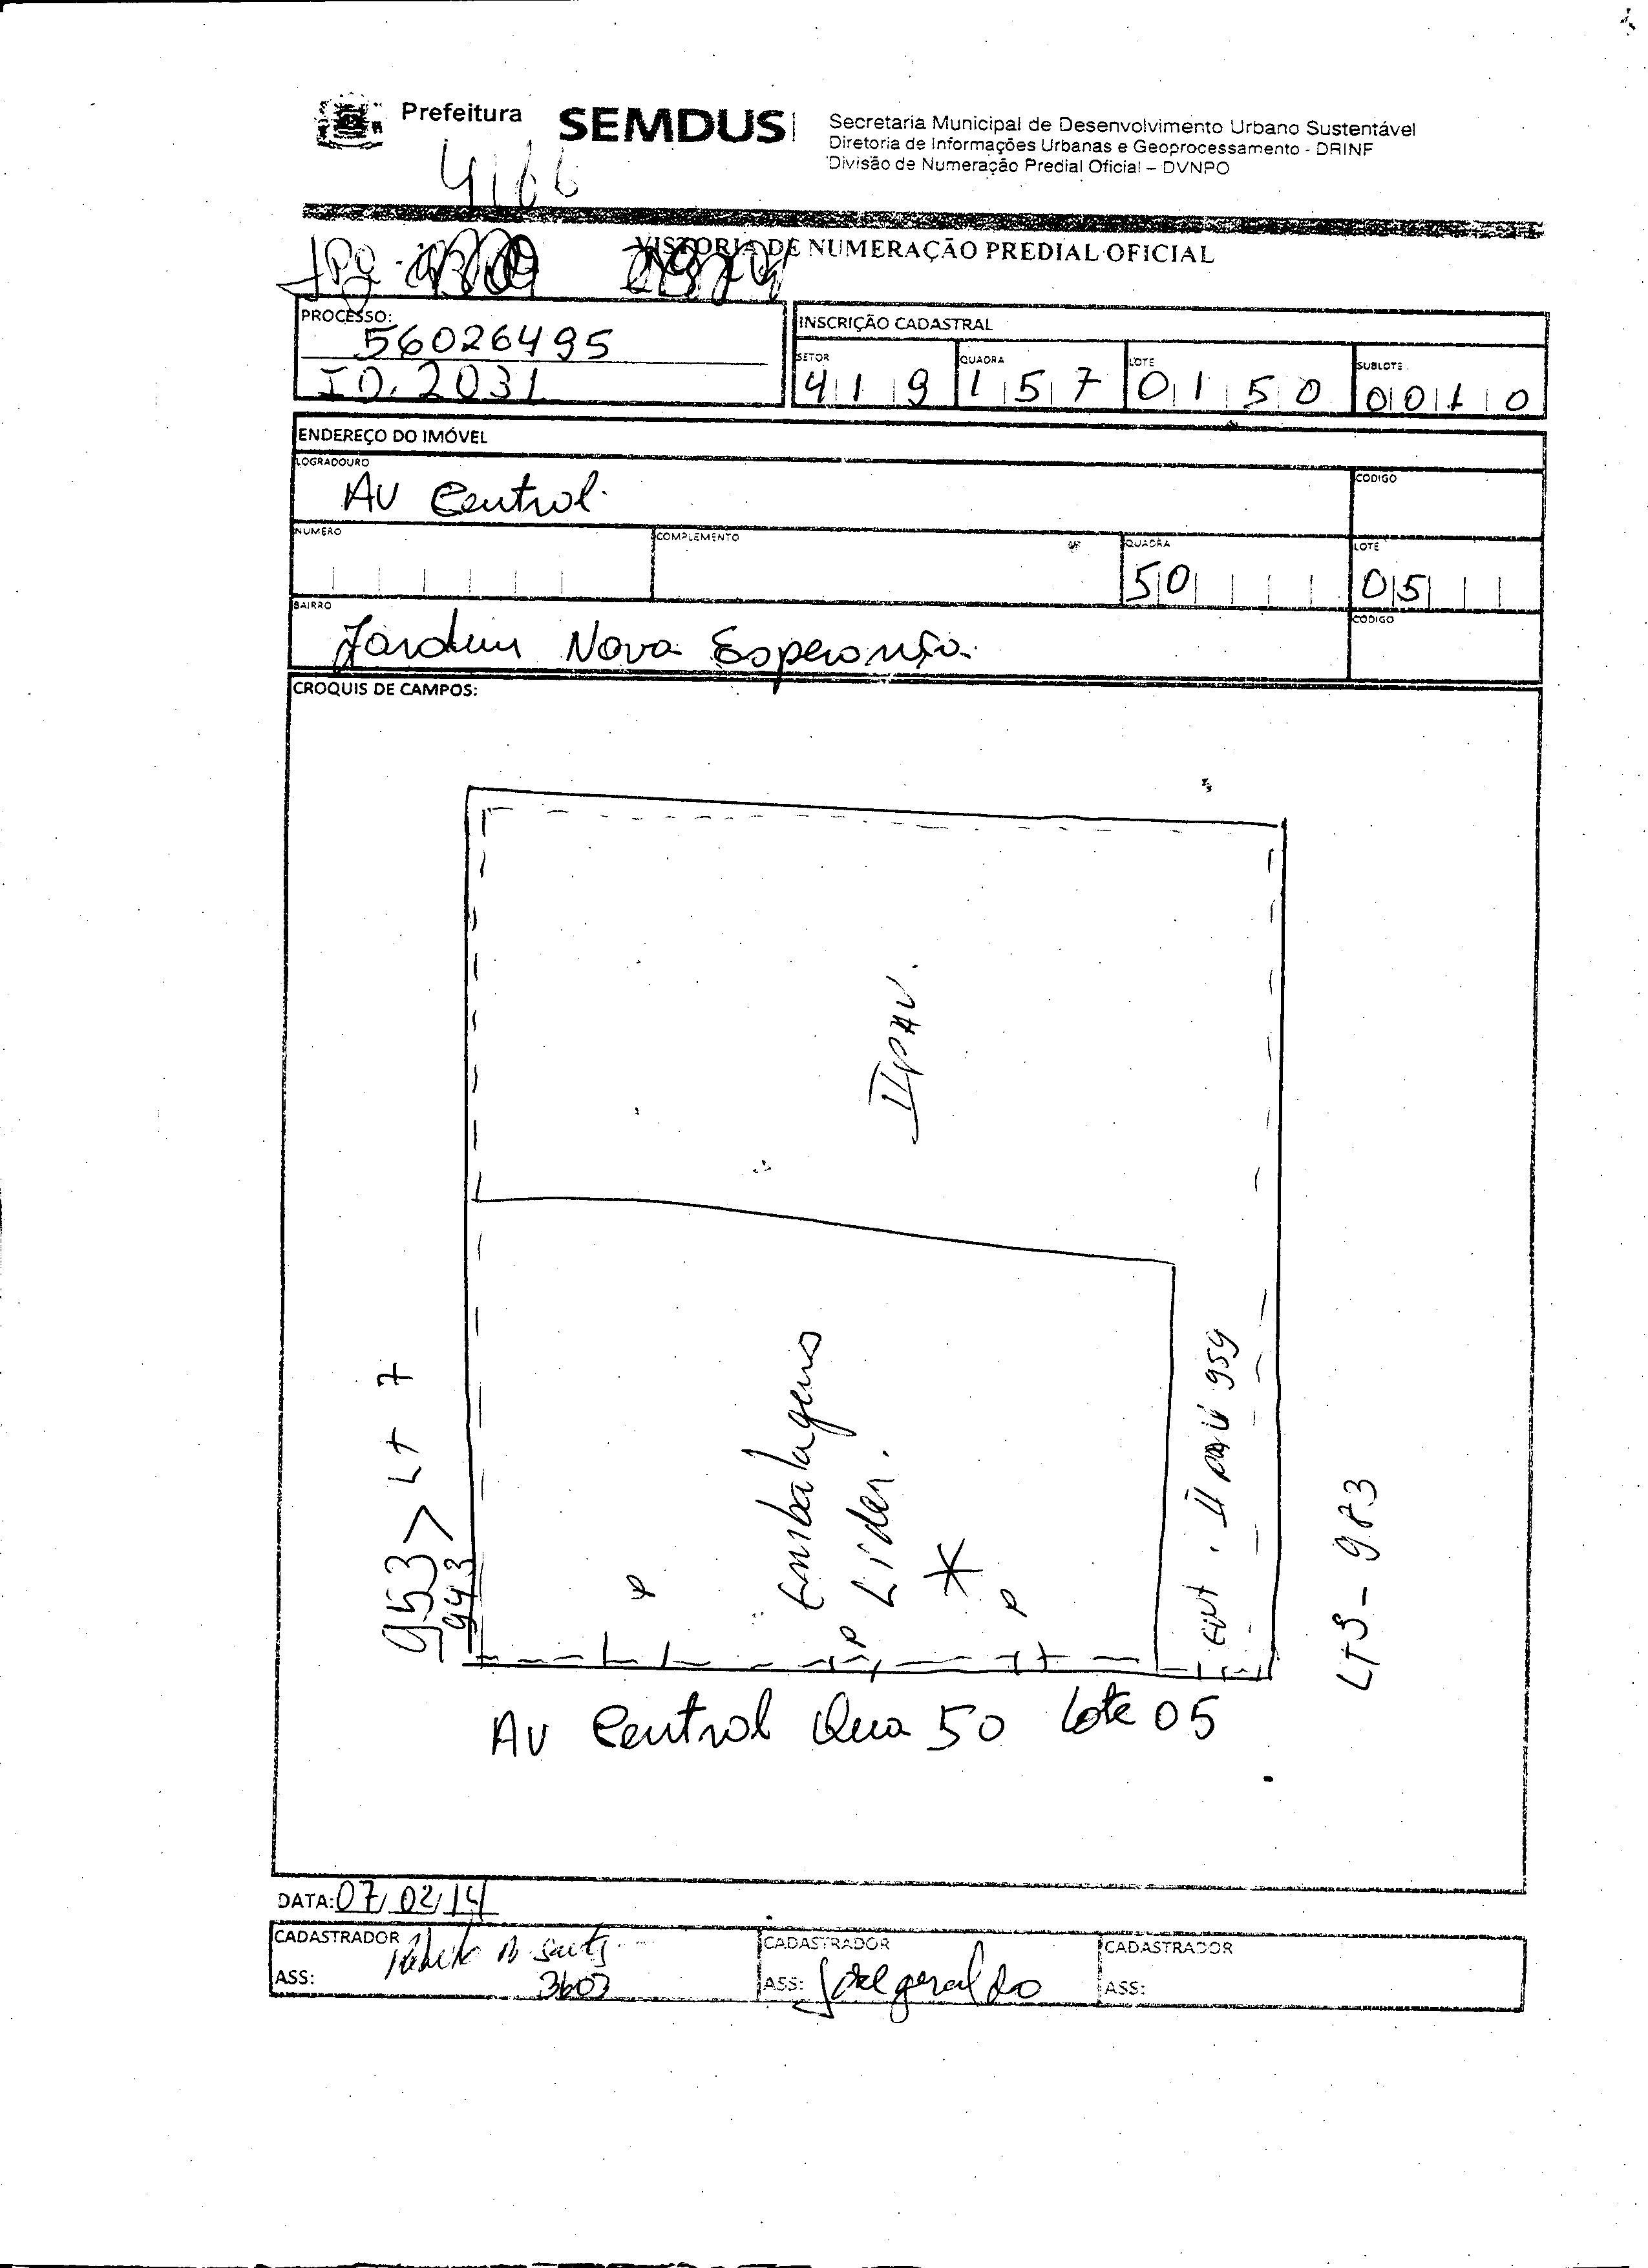 Prefeitura SEMDUS
Secretaria Municipal de Desenvolvimento Urbano Sustentável
Diretoria de Informações Urbanas e Geoprocessamento - DRINF
Divisão de Numeração Predial Oficial – DVNPO
4166
VISTORIA DE NUMERAÇÃO PREDIAL OFICIAL
PROCESSO:
56026495
ID. 2031
INSCRIÇÃO CADASTRAL
SETOR QUADRA LOTE SUBLOTE
419 157 0150 0010
ENDEREÇO DO IMÓVEL
LOGRADOURO CODIGO
Av Central
NUMERO COMPLEMENTO QUADRA LOTE
50 05
BAIRRO CODIGO
Jardim Nova Esperança
CROQUIS DE CAMPOS:
II PAV.
Embalagens
Lider.
953 > LT 7
943
ENT. II PAV 959
LT 3 - 983
Av Central Qua 50 Lote 05
DATA: 07/02/14
CADASTRADOR CADASTRADOR CADASTRADOR
ASS: 3603 ASS: geraldo ASS: